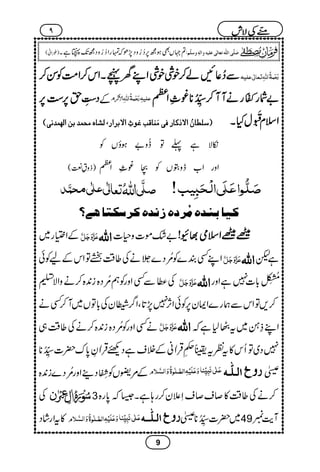 ۹ مُنّے کی لاش
فرمانِ مصطفٰے صلی اللہ تعالٰی علیہ واٰلہ وسلم: تم جہاں بھی ہو مجھ پر دُرُود پڑھو کہ تمہارا دُرُود مجھ تک پہنچتا ہے۔ (طبرانی)
رَحْمَةُ اللهِ تَعَالٰى عَلَيْه سے دُعائیں لے کر خوشی خوشی اپنے گھر پہنچے۔ اس کرامت کو سن کر
بے شمار کفّار نے آ آ کر سیِّدُنا غوثِ اعظم علیہ رَحْمَةُ اللهِ الْاَکرم کے دستِ حق پرست پر
اسلام قبول کیا۔ (سلطانُ الاذکار فی مَناقب غوث الابرار، لشاہ محمد بن الھمدنی)
نکالا ہے پہلے تو ڈوبے ہوؤں کو
اور اب ڈوبتوں کو بچا غوثِ اعظم (ذوقِ نعت)
صَلُّوْا عَلَى الْحَبِيْب! صلَّى اللهُ تعالٰى علٰى محمَّد
کیا بندہ مُردہ زندہ کر سکتا ہے؟
میٹھے میٹھے اسلامی بھائیو! بے شک موت و حیات اللہ عَزَّوَجَلَّ کے اختیار میں
ہے لیکن اللہ عَزَّوَجَلَّ اپنے کسی بندے کو مُردے جِلانے کی طاقت بخشے تو اس کے لیے کوئی
مُشکِل بات نہیں ہے اور اللہ عَزَّوَجَلَّ کی عطا سے کسی اور کو ہم مُردہ زندہ کرنے والا تسلیم
کریں تو اس سے ہمارے ایمان پر کوئی اثر نہیں پڑتا، اگر شیطان کی باتوں میں آ کر کسی نے
اپنے ذہن میں یہ بٹھا لیا ہے کہ اللہ عَزَّوَجَلَّ نے کسی اور کو مُردہ زندہ کرنے کی طاقت ہی
نہیں دی تو اُس کا یہ نظریہ یقیناً حکمِ قراٰنی کے خلاف ہے دیکھئے قراٰنِ پاک حضرت سیِّدُنا
عیسیٰ روح اللہ عَلٰى نَبِيِّنَا وَعَلَيْهِ الصَّلٰوةُ وَالسَّلَام کے مریضوں کو شفا دینے اور مُردے زندہ
کرنے کی طاقت کا صاف صاف اعلان کر رہا ہے۔ جیسا کہ پارہ 3 سُوْرَةُ اٰلِ عِمْرٰن کی
آیت نمبر 49 میں حضرت سیِّدُنا عیسیٰ روح اللہ عَلٰى نَبِيِّنَا وَعَلَيْهِ الصَّلٰوةُ وَالسَّلَام کا یہ ارشاد
9